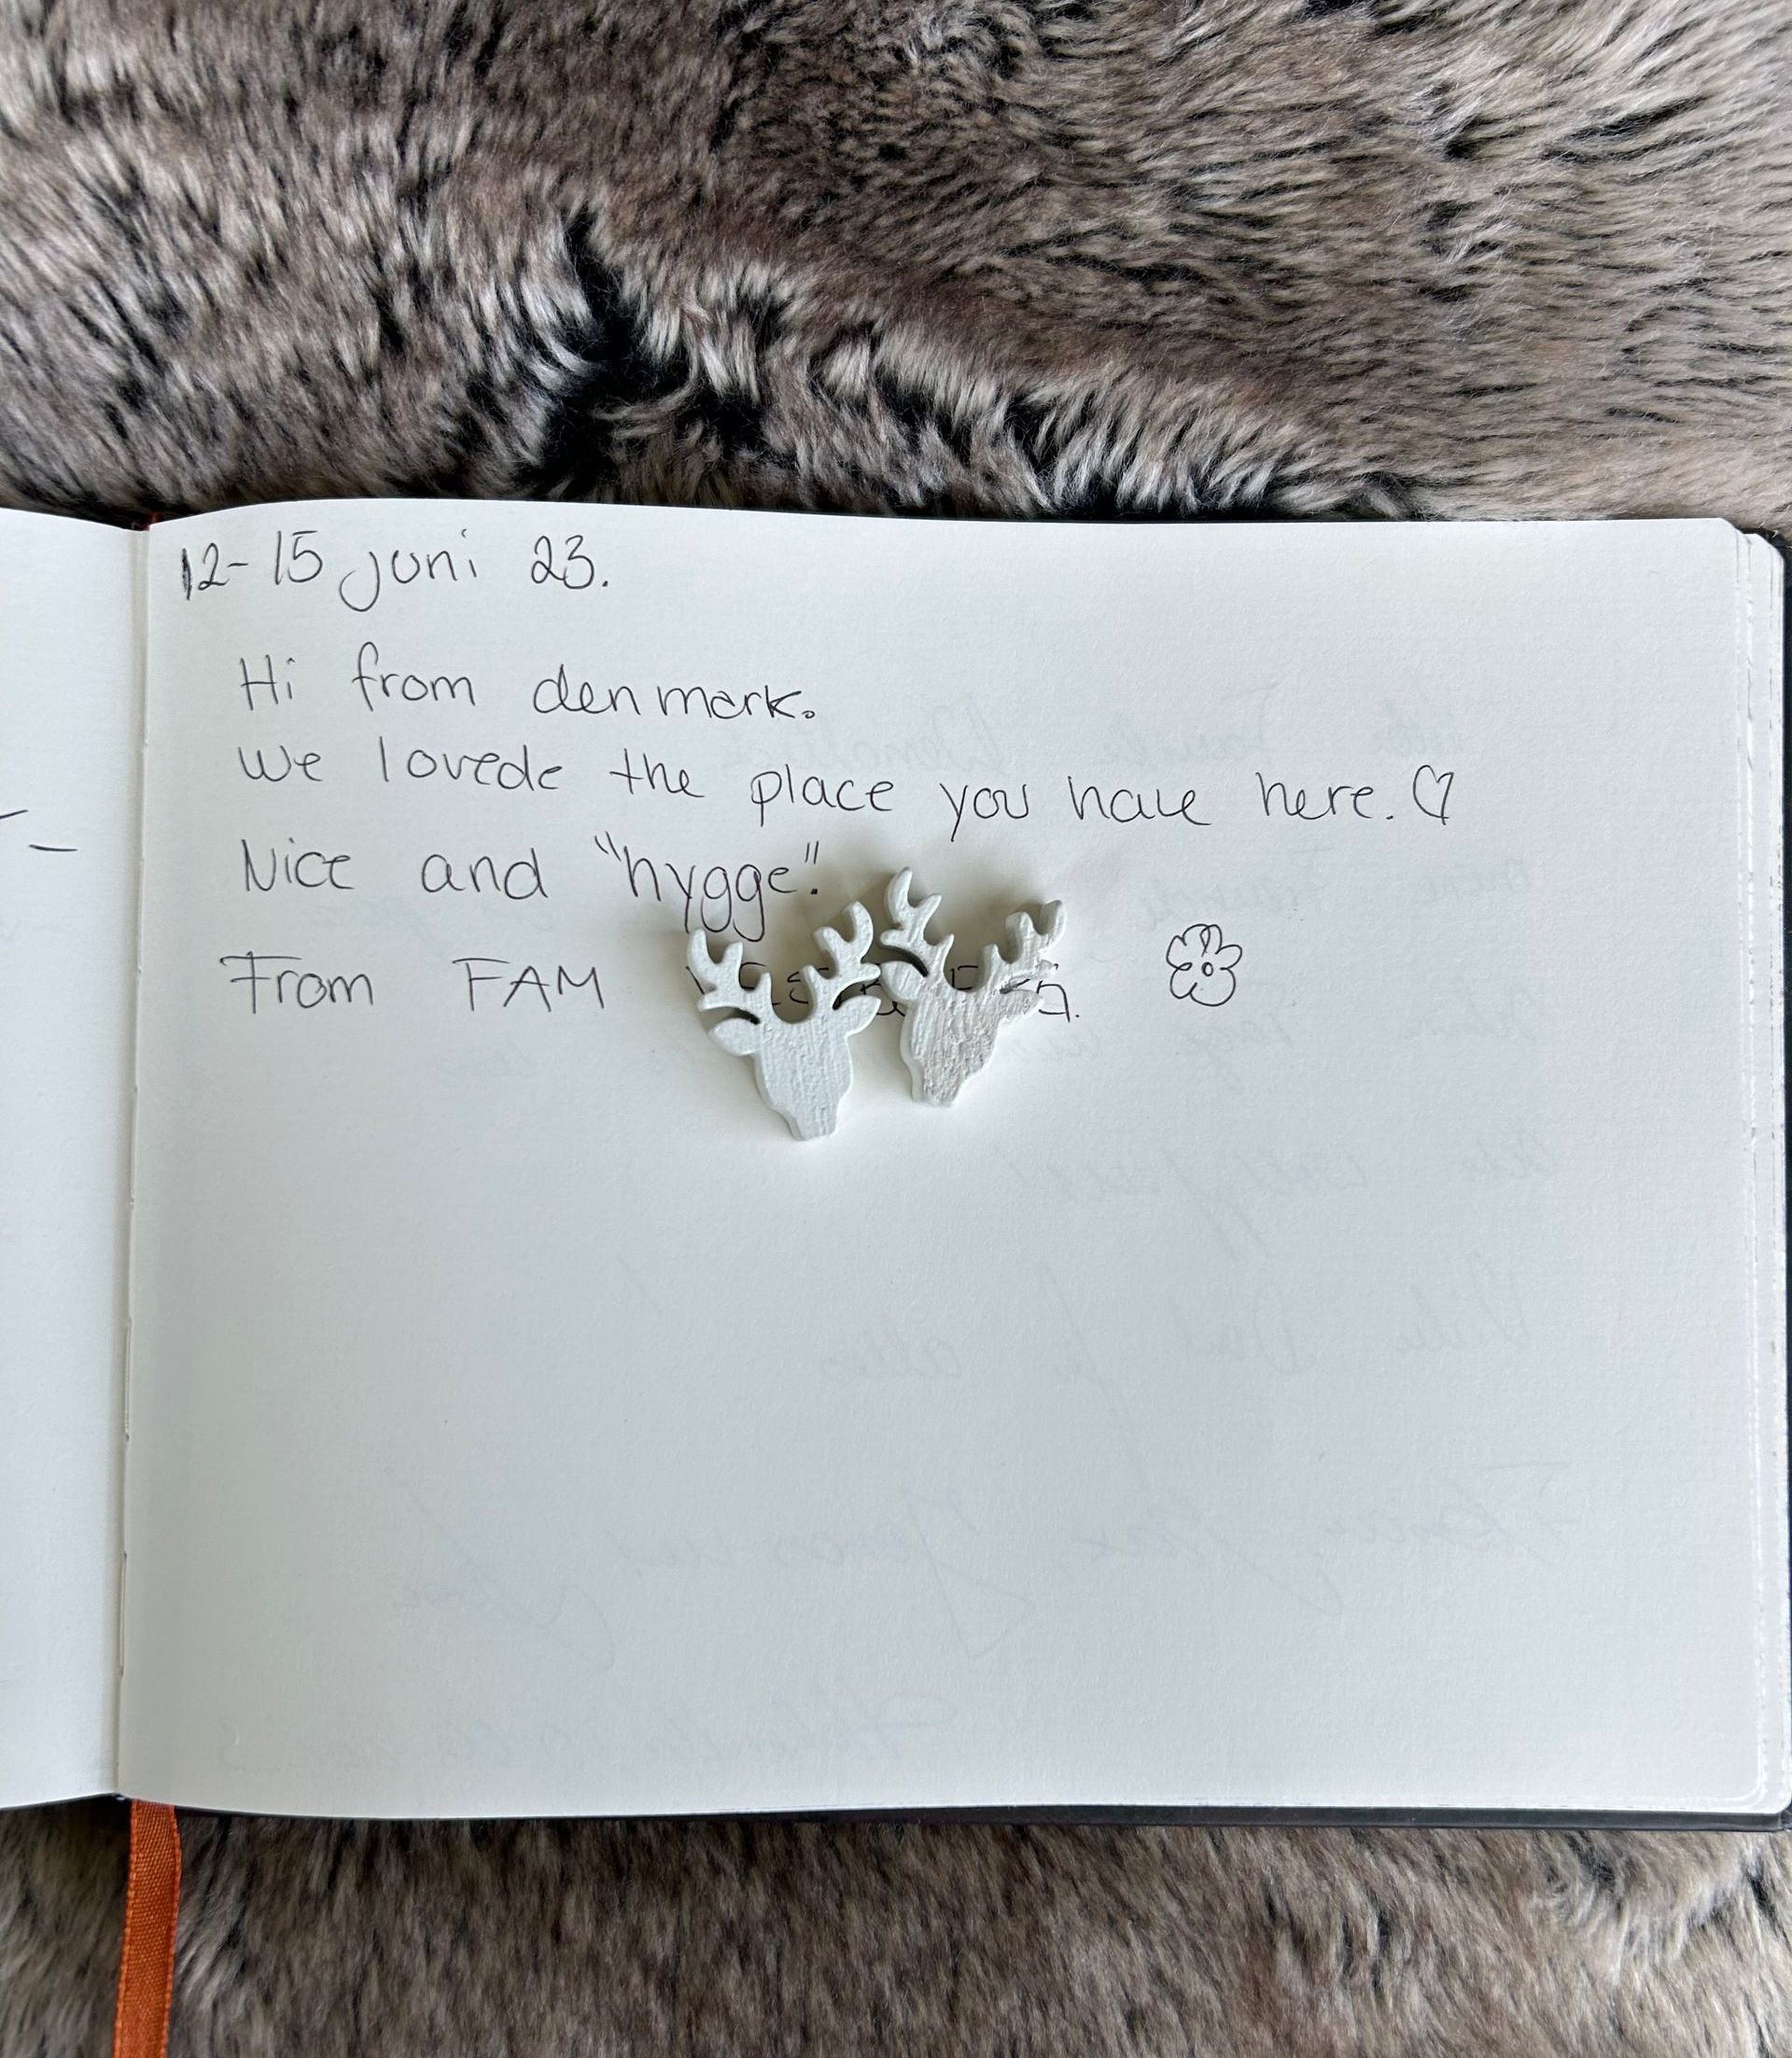 12-15 juni 23.
Hi from denmark.
We lovede the place you have here. ♡
Nice and "hygge".
From FAM